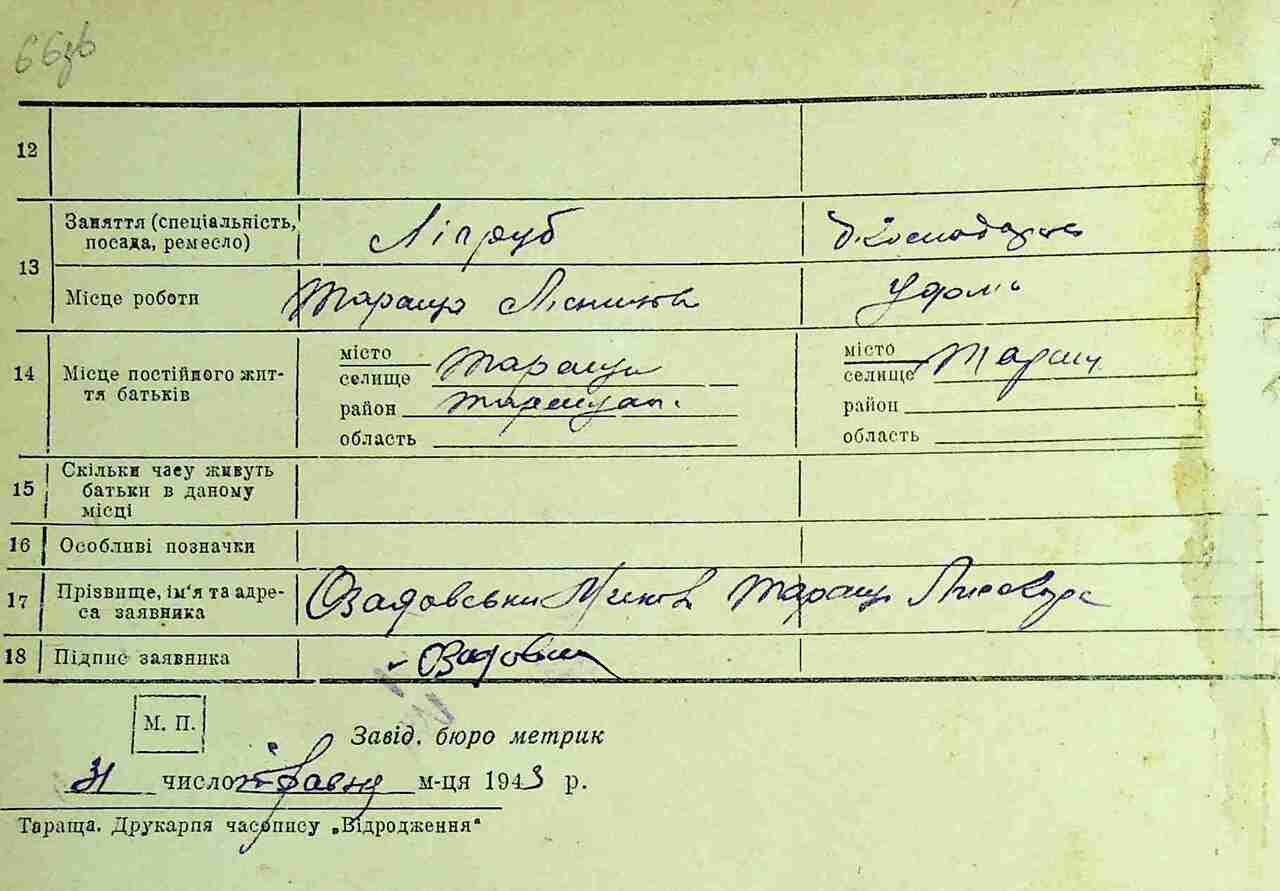 66зв
12
Заняття (спеціальність, посада, ремесло) Ліпруб д. господарка
13
Місце роботи Тараща у домі
14 Місце постійного жит-
тя батьків
місто Тараща місто Тараща
селище селище
район район
область область
15 Скільки часу живуть
батьки в даному
місці
16 Особливі позначки
17 Прізвище, ім'я та адре-
са заявника Озадовський Тараща
18 Підпис заявника
М. П.
Завід. бюро метрик
31 число травня м-ця 1943 р.
Тараща. Друкарня часопису „Відродження"